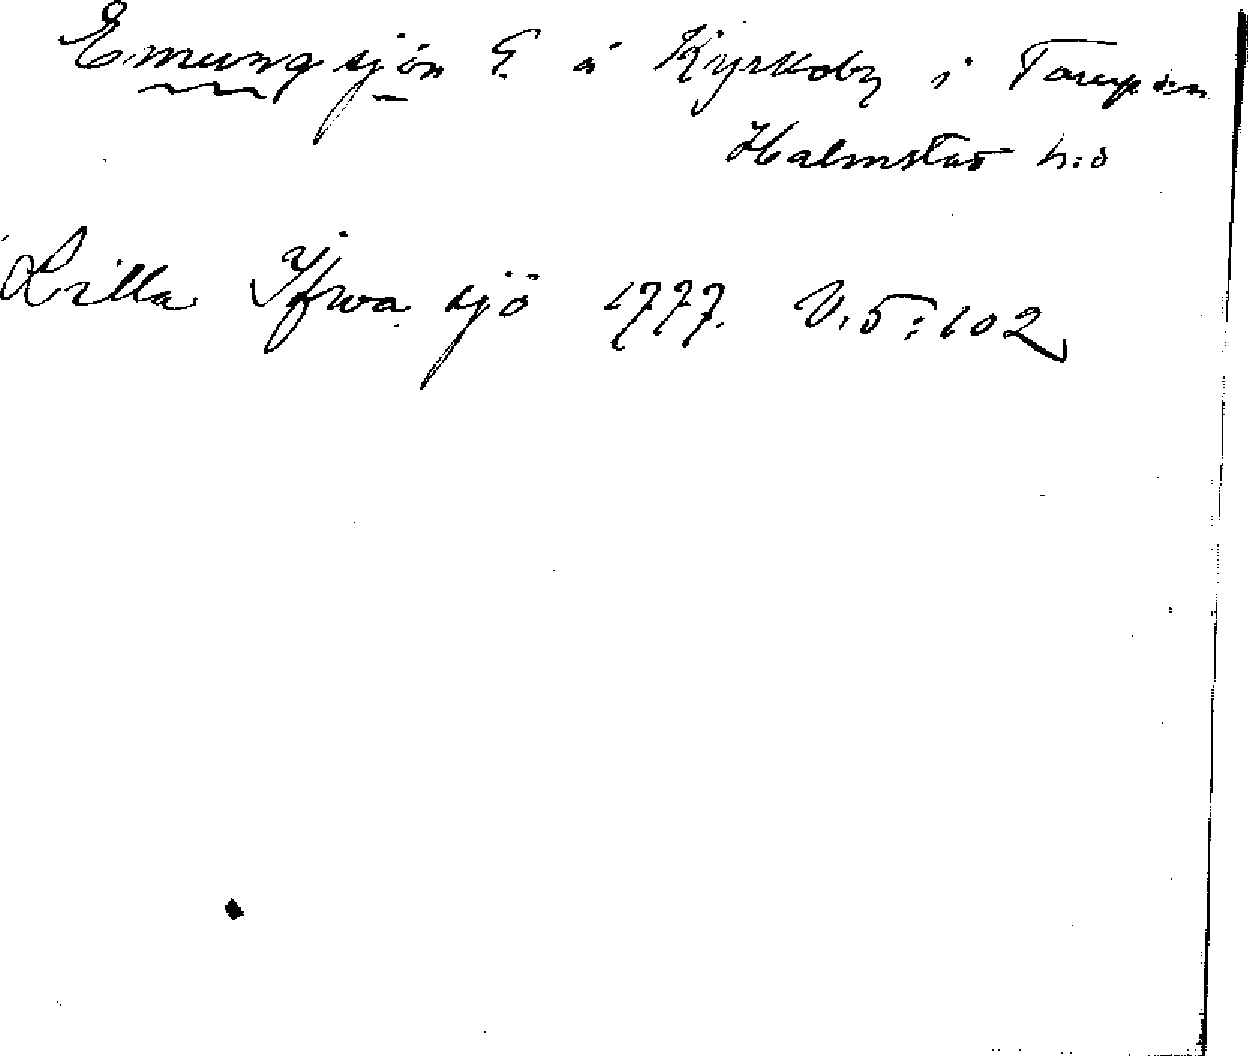 Emungsjön E. å Kyrkoby i Torup sn
Halmstad h:d
Lilla Yfwa sjö 1777. V:5:102